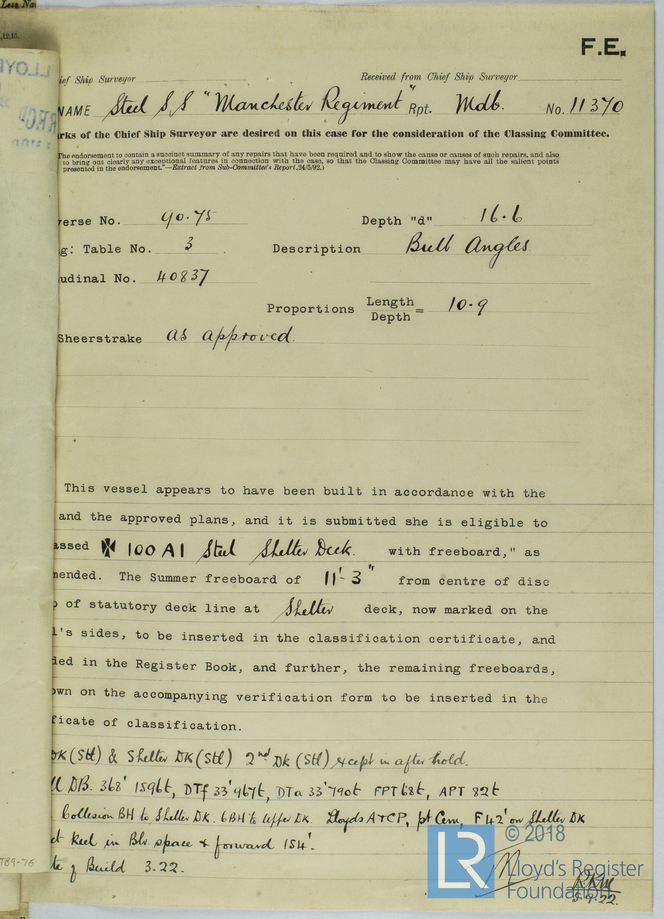 F.E.
ief Ship Surveyor Received from Chief Ship Surveyor
NAME Steel S.S "Manchester Regiment" Rpt. Mdb. No. 11370
arks of the Chief Ship Surveyor are desired on this case for the consideration of the Classing Committee.
The endorsement to contain a succinct summary of any repairs that have been required and to show the cause or causes of such repairs, and also
to bring out clearly any exceptional features in connection with the case, so that the Classing Committee may have all the salient points
presented in the endorsement."—Extract from Sub-Committee's Report, 24/5/92.)
verse No. 90.75 Depth "d" 16.6
g: Table No. 3 Description Bulb Angles
udinal No. 40837
Proportions Length
Depth = 10.9
Sheerstrake as approved.
This vessel appears to have been built in accordance with the
and the approved plans, and it is submitted she is eligible to
assed ✠ 100 A1 Steel Shelter Deck. with freeboard," as
mended. The Summer freeboard of 11'-3" from centre of disc
p of statutory deck line at Shelter deck, now marked on the
l's sides, to be inserted in the classification certificate, and
ded in the Register Book, and further, the remaining freeboards,
own on the accompanying verification form to be inserted in the
ficate of classification.
DK (Stl) & Shelter DK (Stl) 2nd Dk (Stl) except in after hold.
ll DB. 368' 1596t, DTf 33' 967t, DTa 33' 790t FPT 68t, APT 82t
Collision BH to Shelter DK. 6BH to upper DK. Lloyds A & CP, pt Cem, F 42' on Shelter DK
et keel in Blr. space & forward 154'.
te of Build 3.22.
T89-76
LR © 2018
Lloyd's Register
Foundation
5.4.22.